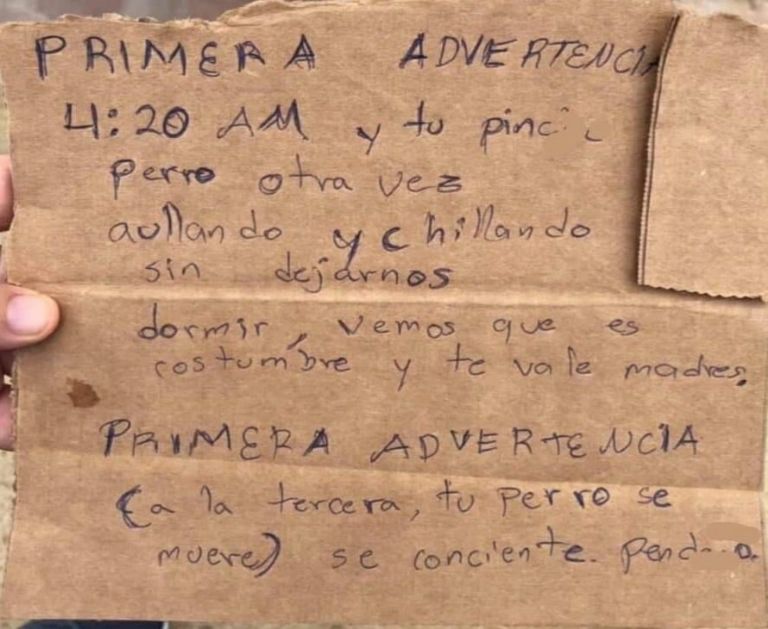 PRIMERA ADVERTENCIA
4:20 AM y tu
perro otra vez
aullando y chillando
sin dejarnos
dormir, vemos que es
costumbre y te vale madres.
PRIMERA ADVERTENCIA
(a la tercera, tu perro se
muere) se conciente.